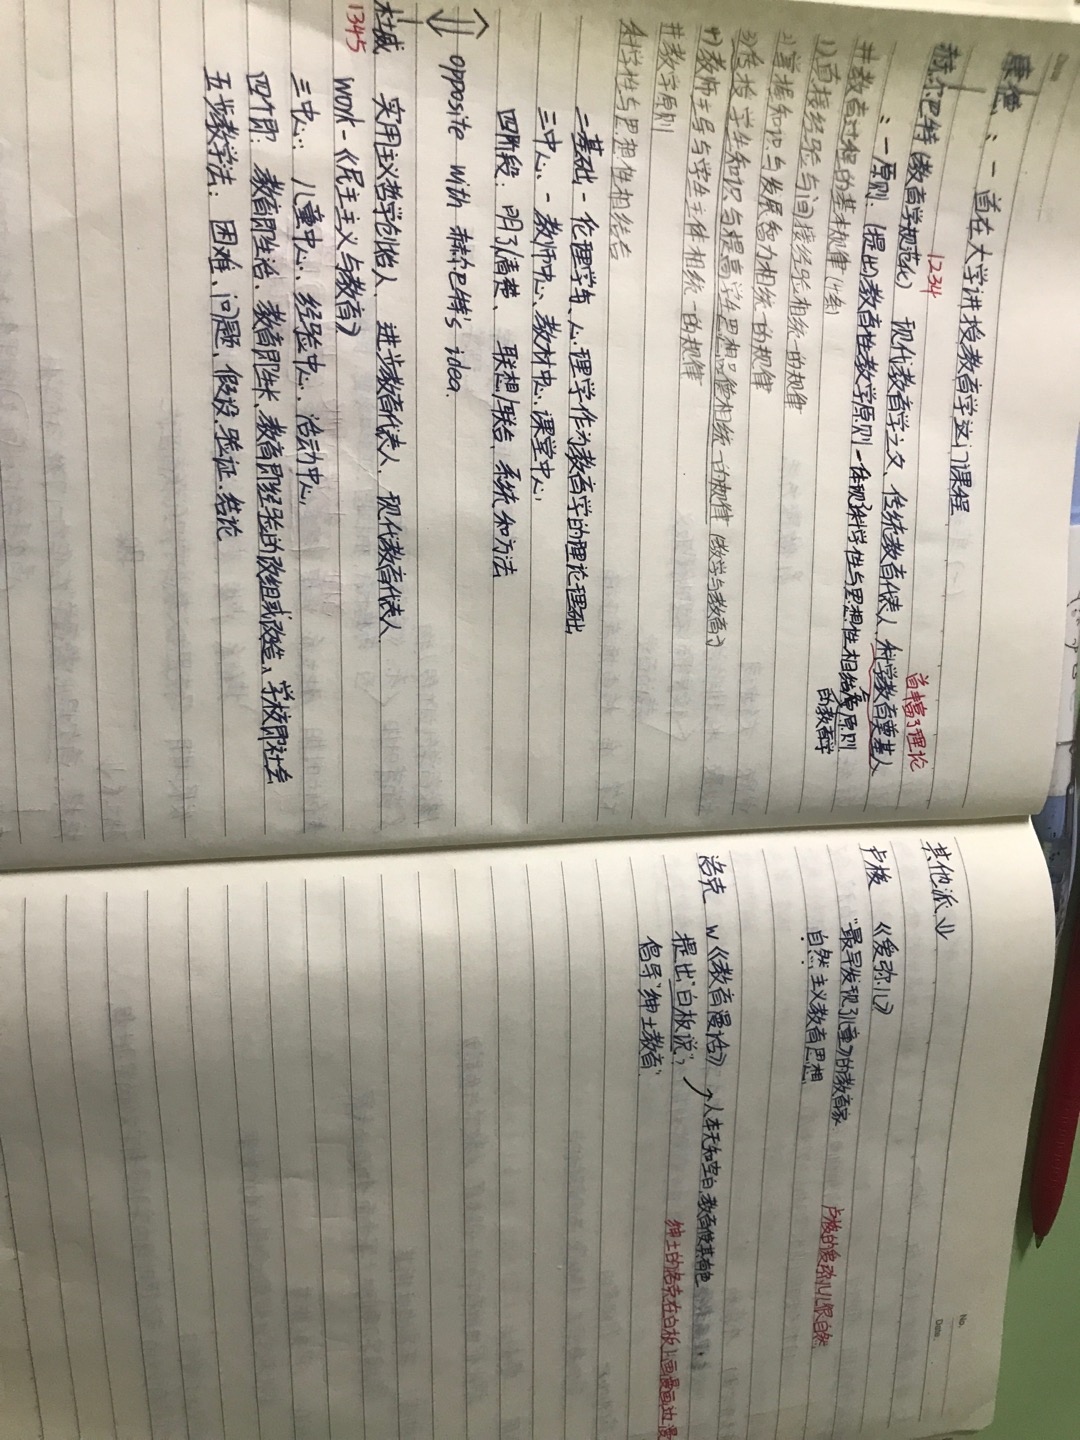 Date
康德:- 首在大学讲授教育学这门课程
1234
赫尔巴特(教育学规范化) 现代教育学之父、传统教育代表人、科学教育奠基人
首搞了理论
:一原则:(提出)教育性教学原则 - 体现科学性与思想性相结合原则
的教育学
#教育过程的基本规律(4条)
1)直接经验与间接经验相统一的规律
2)掌握知识与发展智力相统一的规律
3)传授学生知识与提高学生思想品德相统一的规律(教学与教育)
4)教师主导与学生主体相统一的规律
#教学原则
科学性与思想性相结合
二基础 - 伦理学与心理学作为教育学的理论基础
三中心 - 教师中心、教材中心、课堂中心
四阶段:明了/清楚、联想/联合、系统和方法
opposite with 赫尔巴特's idea.
杜威 实用主义哲学创始人、进步教育代表人、现代教育代表人
1345 work -《民主主义与教育》
三中心:儿童中心、经验中心、活动中心
四个即:教育即生活、教育即生长、教育即经验的改组或改造、学校即社会
五步教学法:困难、问题、假设、验证、结论
No.
Date
其他派业
卢梭 《爱弥儿》
"最早发现了儿童"的教育家
自然主义教育思想
卢梭的爱弥儿很自然
洛克 W《教育漫话》
提出"白板说" → 人本无知空白,教育使其有色
倡导"绅士教育"
绅士的洛克在白板上画漫画边漫